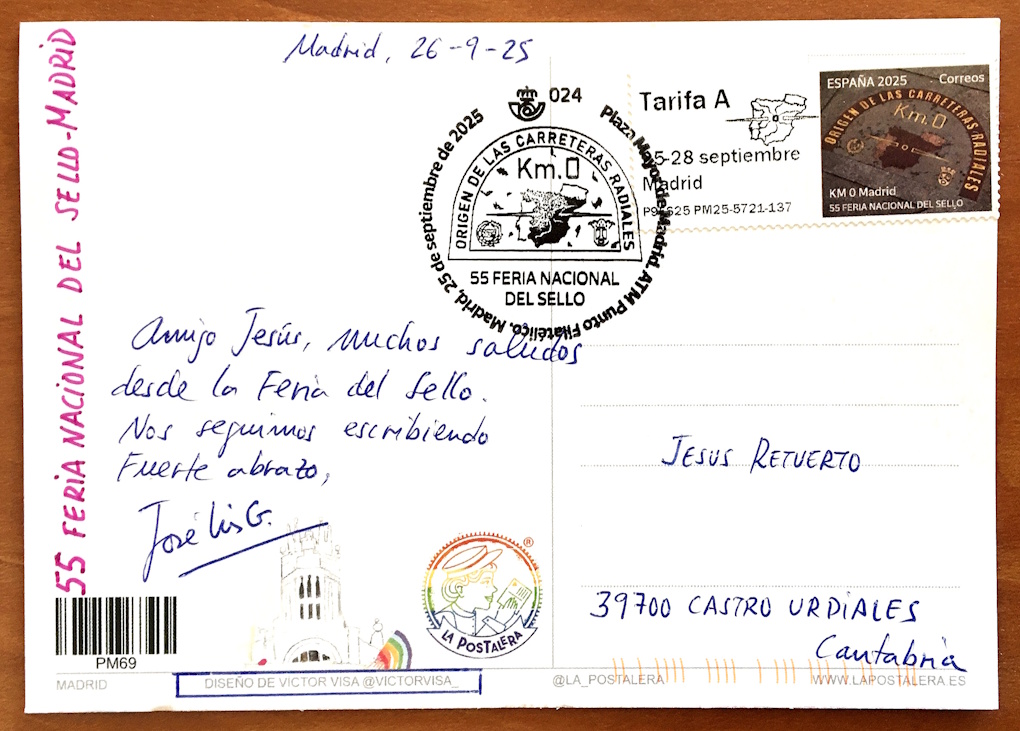 Madrid, 26-9-25
55 FERIA NACIONAL DEL SELLO-MADRID
024
Plaza Mayor de Madrid. ATM Punto Filatélico. Madrid, 25 de septiembre de 2025
ORIGEN DE LAS CARRETERAS RADIALES
Km.0
55 FERIA NACIONAL
DEL SELLO
Tarifa A
5-28 septiembre
Madrid
PM25-5721-137
ESPAÑA 2025 Correos
ORIGEN DE LAS CARRETERAS RADIALES
Km.0
KM 0 Madrid
55 FERIA NACIONAL DEL SELLO
Amigo Jesús, muchos saludos
desde la Feria del Sello.
Nos seguimos escribiendo
Fuerte abrazo,
José Luis G.
JESUS RETUERTO
39700 CASTRO URDIALES
Cantabria
LA POSTALERA
®
PM69
MADRID
DISEÑO DE VICTOR VISA @VICTORVISA_
@LA_POSTALERA
WWW.LAPOSTALERA.ES